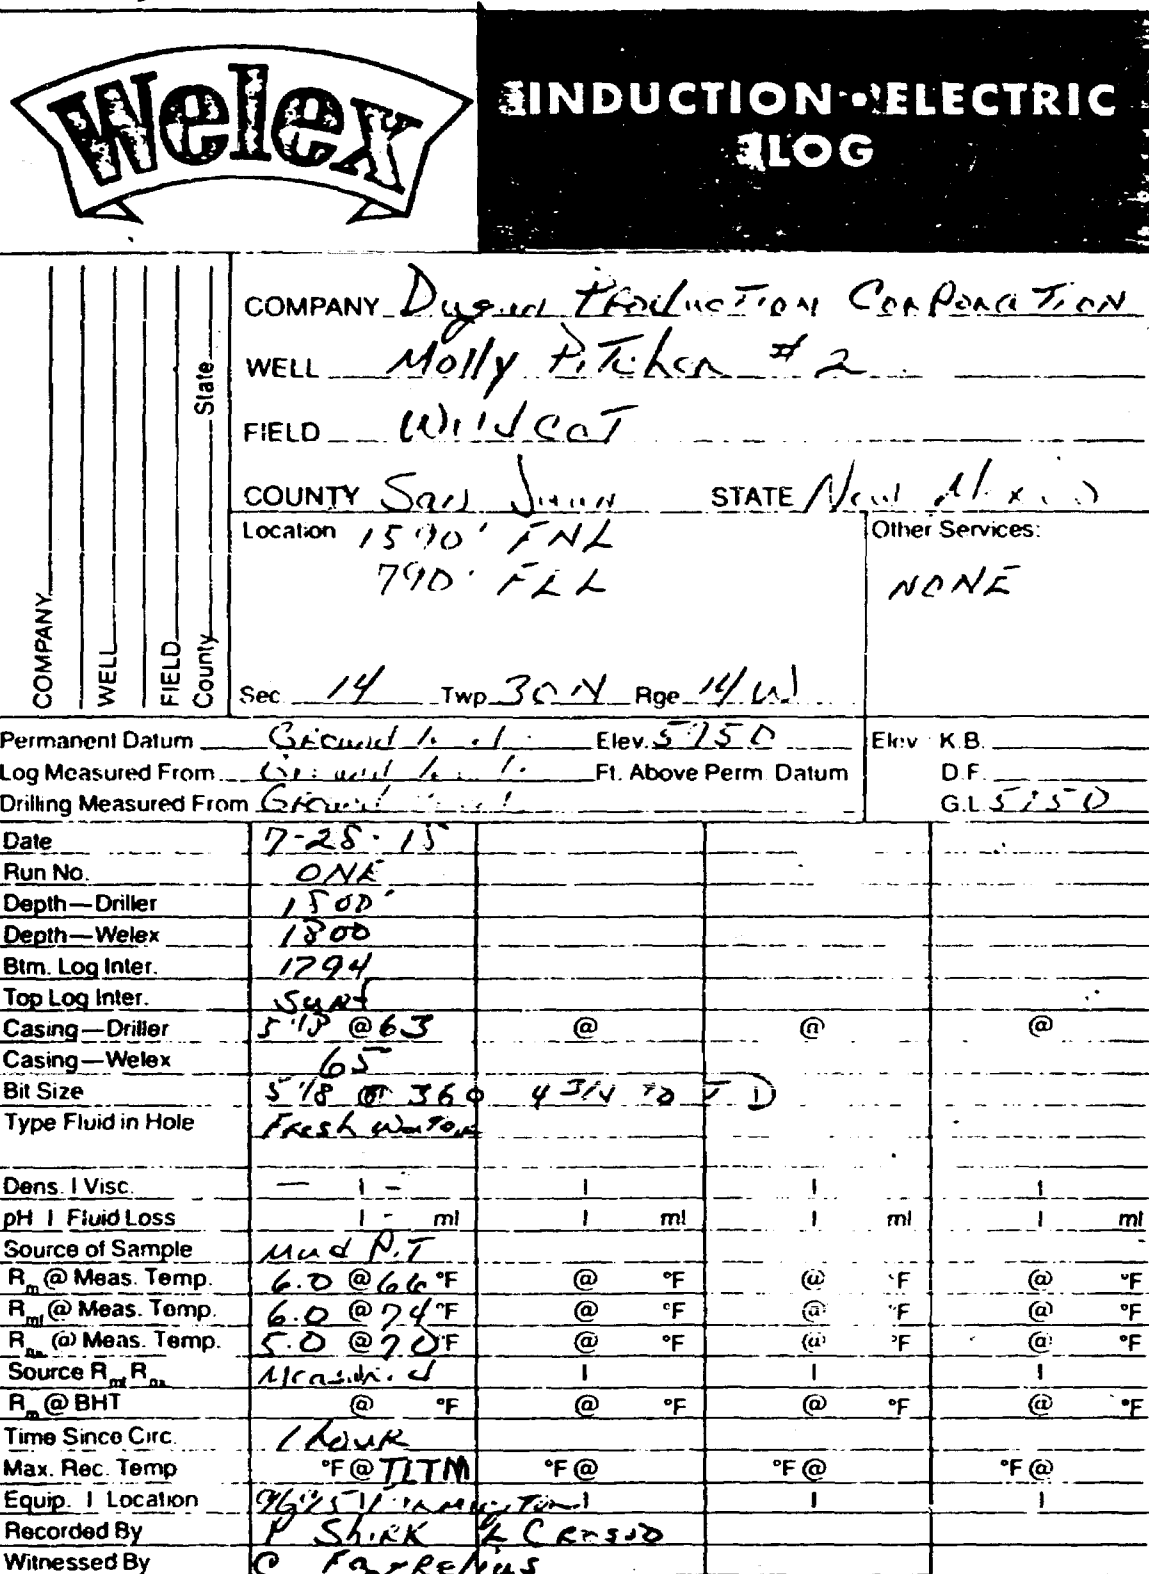 Welex
INDUCTION • ELECTRIC
LOG
COMPANY
WELL
FIELD
County State
COMPANY Dugan Production Corporation
WELL Molly Pitcher # 2
FIELD Wildcat
COUNTY San Juan STATE New Mexico
Location 1590' FNL
790' FEL
Other Services:
NONE
Sec 14 Twp 30N Rge 14W
Permanent Datum Ground Level Elev.
Elev K.B.
Log Measured From Ground Level Ft. Above Perm Datum
D.F.
Drilling Measured From Ground Level
G.L.
Date
Run No. ONE
Depth—Driller 1800'
Depth—Welex 1800
Btm. Log Inter. 1794
Top Log Inter. Surf
Casing—Driller @ 63 @ @ @
Casing—Welex 65
Bit Size 5 1/8 @ 360 4 3/4 TO TD
Type Fluid in Hole Fresh Water
Dens. | Visc. — | - | | |
pH | Fluid Loss | - ml | ml | ml | ml
Source of Sample Mud Pit
Rm @ Meas. Temp. 6.0 @ 66 °F @ °F @ °F @ °F
Rmf @ Meas. Temp. 6.0 @ 74 °F @ °F @ °F @ °F
@ Meas. Temp. 5.0 @ 70 °F @ °F @ °F @ °F
Source Rmf Measured | | |
Rm @ BHT @ °F @ °F @ °F @ °F
Time Since Circ. 1 hour
Max. Rec. Temp °F @ TLTM °F @ °F @ °F @
Equip. | Location Farmington | | |
Recorded By P Shirk
Witnessed By